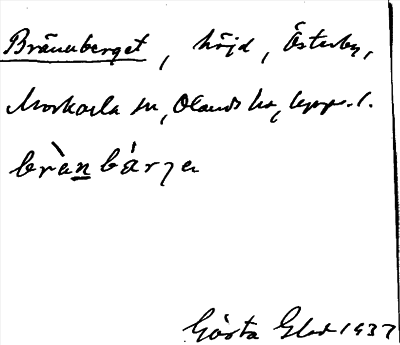 Brännberget, höjd, Österby,
Morkarla sn, Olands hd, Upps. l.
brànbárʒen
Gösta Glad 1937